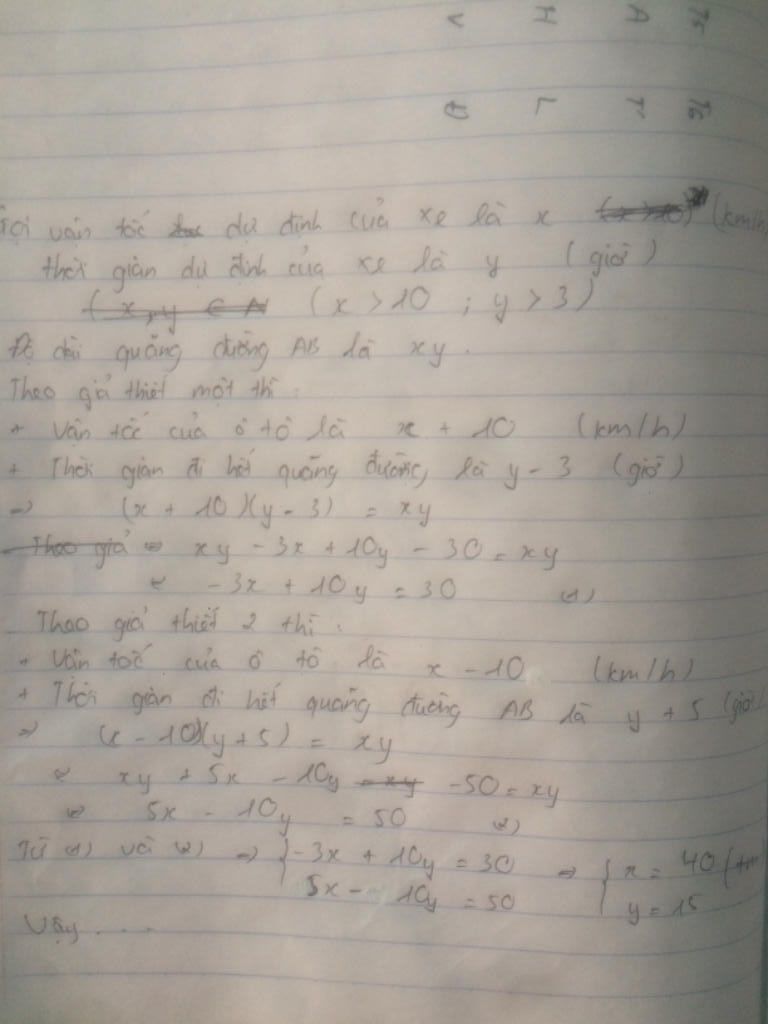 Gọi vận tốc dự định của xe là x (km/h)
thời gian dự định của xe là y (giờ)
( x, y ∈ N (x > 10 ; y > 3)
Độ dài quãng đường AB là xy.
Theo giả thiết một thì:
+ Vận tốc của ô tô là x + 10 (km/h)
+ Thời gian đi hết quãng đường là y - 3 (giờ)
=> (x + 10)(y - 3) = xy
Theo giả <=> xy - 3x + 10y - 30 = xy
<=> -3x + 10y = 30 (1)
Theo giả thiết 2 thì:
+ Vận tốc của ô tô là x - 10 (km/h)
+ Thời gian đi hết quãng đường AB là y + 5 (giờ
=> (x - 10)(y + 5) = xy
<=> xy + 5x - 10y = xy - 50 = xy
<=> 5x - 10y = 50 (2)
Từ (1) và (2) => { -3x + 10y = 30 => { x = 40 (tm
5x - 10y = 50 y = 15
Vậy . . . .